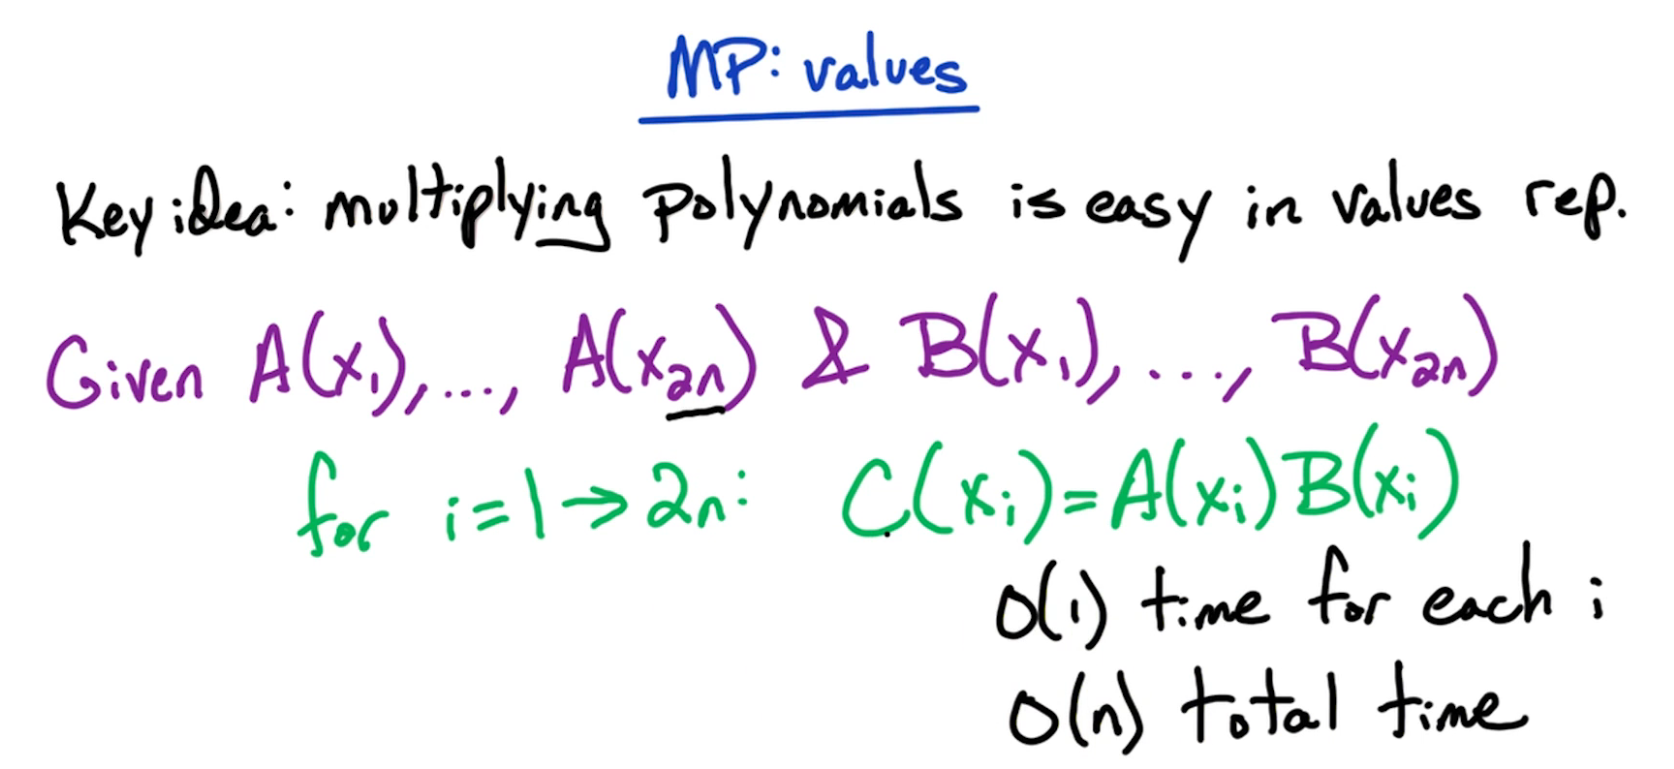 MP: values
Key idea: multiplying polynomials is easy in values rep.
Given A(x₁), ..., A(x₂ₙ) & B(x₁), ..., B(x₂ₙ)
for i=1→2n: C(xᵢ)=A(xᵢ)B(xᵢ)
O(1) time for each i
O(n) total time